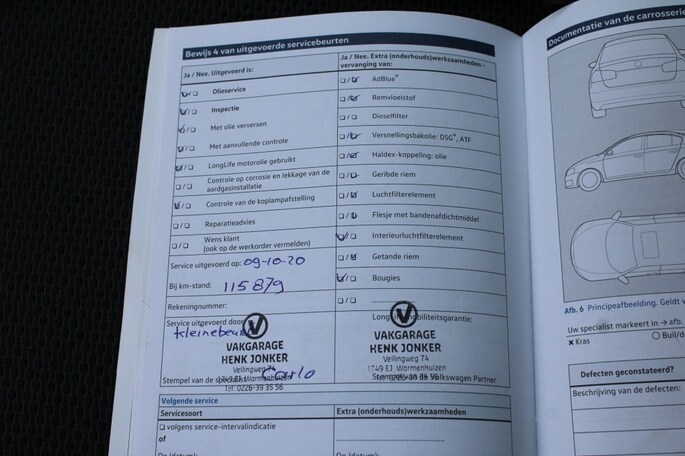 Bewijs 4 van uitgevoerde servicebeurten
Ja / Nee. Uitgevoerd is:
Olieservice
Inspectie
Met olie verversen
Met aanvullende controle
LongLife motorolie gebruikt
Controle op corrosie en lekkage van de
aardgasinstallatie
Controle van de koplampafstelling
Reparatieadvies
Wens klant
(ook op de werkorder vermelden)
Service uitgevoerd op: 09-10-20
Bij km-stand: 115879
Rekeningnummer:
Service uitgevoerd door
VAKGARAGE
HENK JONKER
Vellingweg 74
1749 EJ Warmenhuizen
Tel: 0226-39 35 56
Stempel van de
Ja / Nee. Extra (onderhouds)werkzaamheden -
vervanging van:
AdBlue®
Remvloeistof
Dieselfilter
Versnellingsbakolie: DSG®, ATF
Haldex-koppeling: olie
Geribde riem
Luchtfilterelement
Flesje met bandenafdichtmiddel
Interieurluchtfilterelement
Getande riem
Bougies
LongLife mobiliteitsgarantie:
VAKGARAGE
HENK JONKER
Vellingweg 74
1749 EJ Warmenhuizen
Volkswagen Partner
Volgende service
Servicesoort
Extra (onderhouds)werkzaamheden
volgens service-intervalindicatie
of
Op (datum):
Documentatie van de carrosserie
Afb. 6 Principeafbeelding. Geldt v
Uw specialist markeert in → afb.
× Kras
Buil/d
Defecten geconstateerd?
Beschrijving van de defecten: